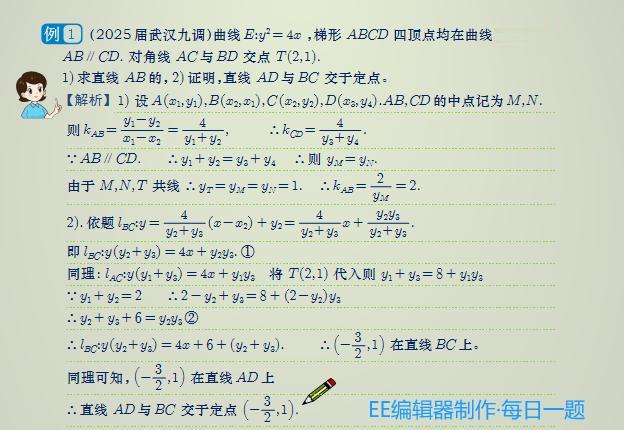 例 1 (2025届武汉九调)曲线 E:y²=4x ,梯形 ABCD 四顶点均在曲线
AB∥CD. 对角线 AC与BD 交点 T(2,1).
1)求直线 AB的,2)证明,直线 AD与BC 交于定点。
【解析】1) 设A(x₁,y₁),B(x₂,x₁),C(x₂,y₂),D(x₃,y₄).AB,CD的中点记为M,N.
则 k_{AB}=\frac{y₁-y₂}{x₁-x₂}=\frac{4}{y₁+y₂}, ∴k_{CD}=\frac{4}{y₃+y₄}.
∵AB∥CD. ∴y₁+y₂=y₃+y₄ ∴则 y_M=y_N.
由于 M,N,T 共线 ∴y_T=y_M=y_N=1. ∴k_{AB}=\frac{2}{y_M}=2.
2).依题 l_{BC}:y=\frac{4}{y₂+y₃}(x-x₂)+y₂=\frac{4}{y₂+y₃}x+\frac{y₂y₃}{y₂+y₃}.
即 l_{BC}:y(y₂+y₃)=4x+y₂y₃.①
同理:l_{AC}:y(y₁+y₃)=4x+y₁y₃ 将 T(2,1)代入则 y₁+y₃=8+y₁y₃
∵y₁+y₂=2 ∴2-y₂+y₃=8+(2-y₂)y₃
∴y₂+y₃+6=y₂y₃②
∴l_{BC}:y(y₂+y₃)=4x+6+(y₂+y₃). ∴(-\frac{3}{2},1) 在直线BC上。
同理可知,(-\frac{3}{2},1) 在直线AD上
∴直线 AD与BC 交于定点 (-\frac{3}{2},1).
EE编辑器制作·每日一题